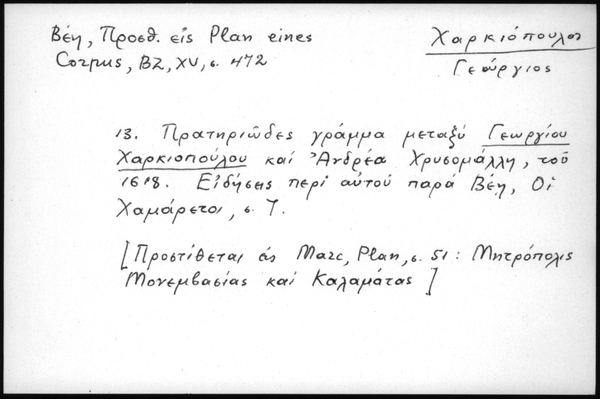 Βέη, Προσθ. εἰς Plan eines
Corpus, BZ, XV, σ. 472
Χαρκιόπουλος
Γεώργιος
13. Πρατηριῶδες γράμμα μεταξύ Γεωργίου
Χαρκιοπούλου καί Ἀνδρέα Χρυσομάλλη, τοῦ
1618. Εἰδήσεις περί αὐτοῦ παρά Βέη, Οἱ
Χαμάρετοι, σ. 7.
[Προστίθεται εἰς Marc, Plan, σ. 51: Μητρόπολις
Μονεμβασίας καί Καλαμάτας]